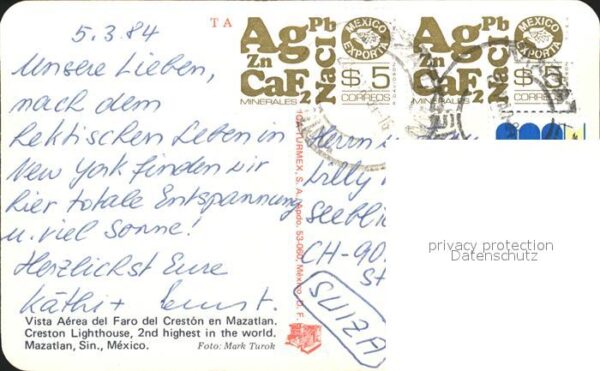 5.3.84
Unsere Lieben,
nach dem
hektischen Leben in
New York finden wir
hier totale Entspannung
u. viel Sonne!
Herzlichst Eure
Käthi +
TA
Ag Pb
Zn NaCl
CaF2
MINERALES
MEXICO EXPORTA
$5
CORREOS
Ag Pb
Zn NaCl
CaF2
MINERALES
MEXICO EXPORTA
$5
CORREOS
Herrn
Willy
Seebli
CH-90
St
SUIZA
TURMEX, S. A. Apdo. 53-060, México, D. F.
privacy protection
Datenschutz
Vista Aérea del Faro del Crestón en Mazatlan.
Creston Lighthouse, 2nd highest in the world.
Mazatlan, Sin., México. Foto: Mark Turok